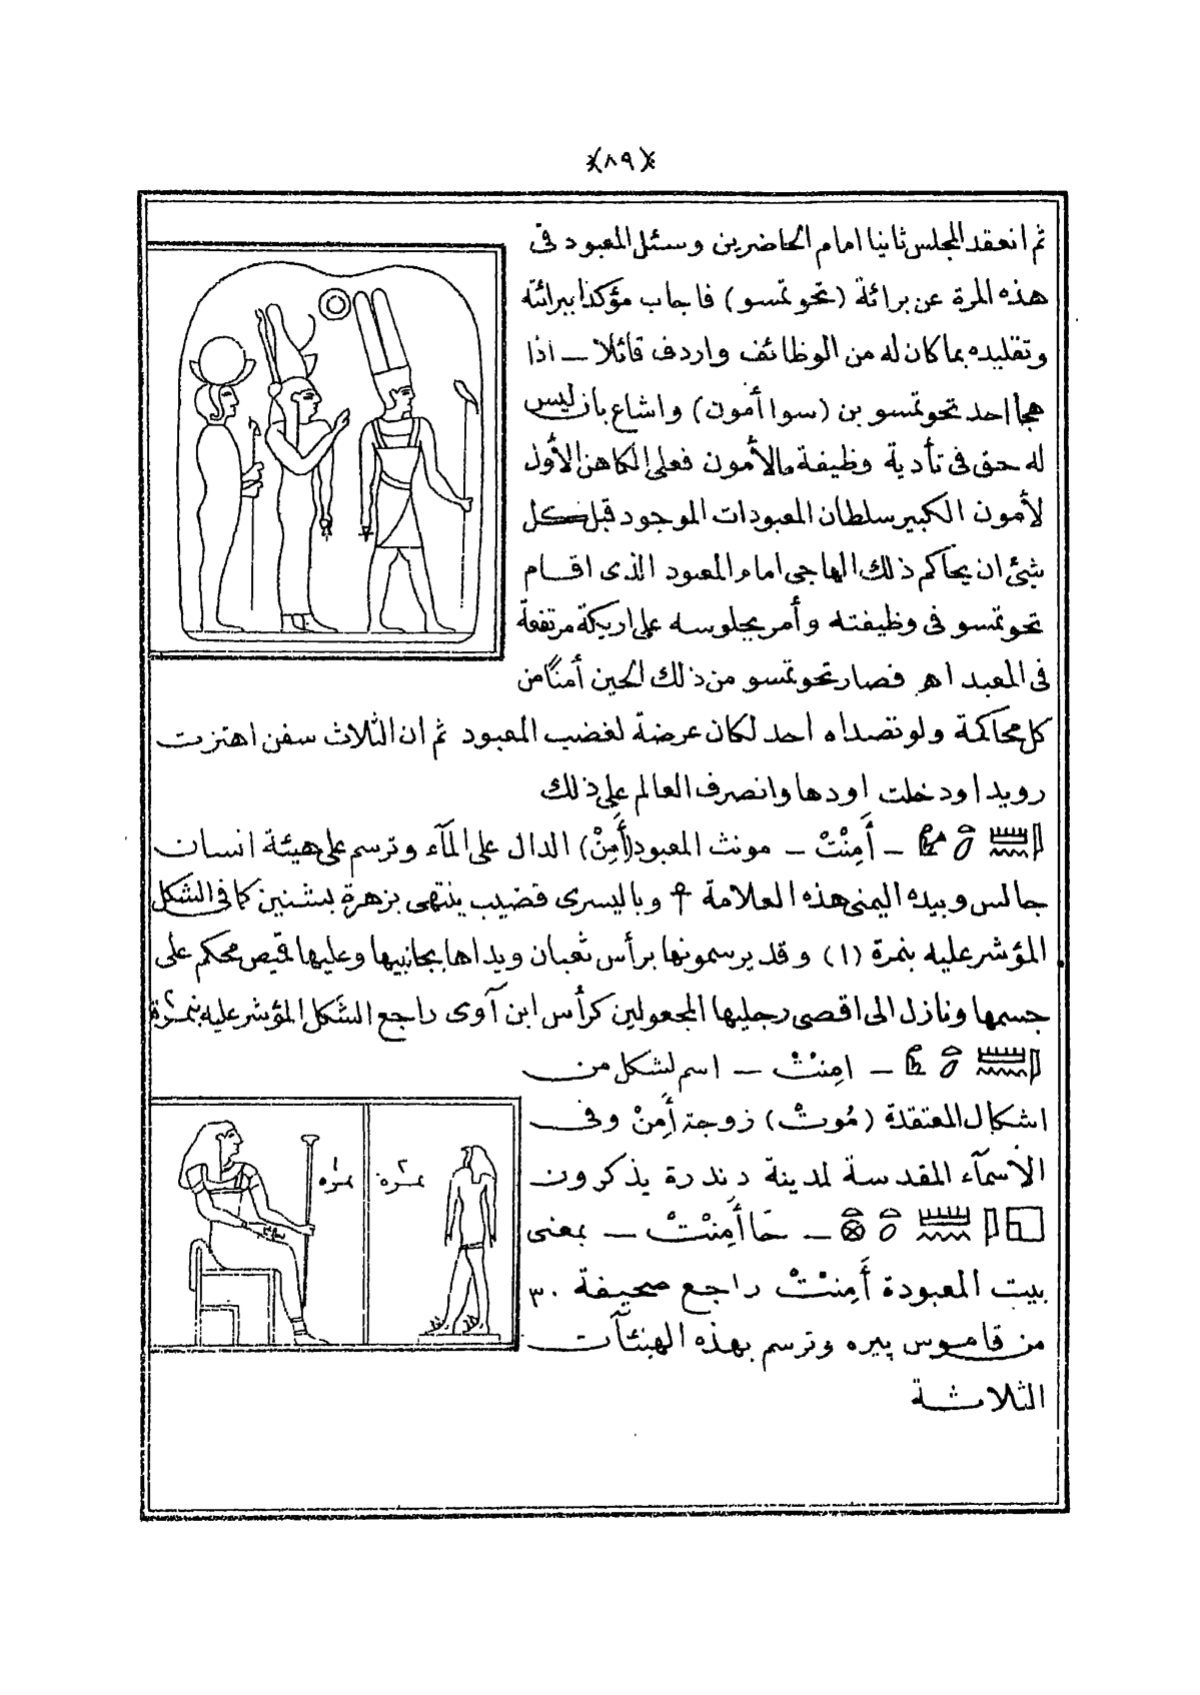 ﴿٨٩﴾
ثم انعقد المجلس ثانيا امام الحاضرين وسئل المعبود فى
هذه المرة عن برائة (تحوتمسو) فاجاب مؤكدا ببرائته
وتقليده بما كان له من الوظائف واردف قائلا ــ اذا
هجا احد تحوتمسو بن (سوا أمون) واشاع بان ليس
له حق فى تأدية وظيفة مالأمون فعلى الكاهن الأول
لأمون الكبير سلطان المعبودات الموجود قبل كل
شئ ان يحاكم ذلك الهاجى امام المعبود الذى اقام
تحوتمسو فى وظيفته وأمر بجلوسه على اريكة مرتفعة
فى المعبد اه فصار تحوتمسو من ذلك الحين أمنًا من
كل محاكمة ولو تصداه احد لكان عرضة لغضب المعبود ثم ان الثلاث سفن اهتزت
رويدا ودخلت اودها وانصرف العالم على ذلك
ــ أَمِنْتْ ــ مونث المعبود (أَمِنْ) الدال على المآء وترسم على هيئة انسان
جالس وبيده اليمنى هذه العلامة ☥ وباليسرى قضيب ينتهى بزهرة بشنين كما فى الشكل
المؤشر عليه بنمرة (١) وقد يرسمونها برأس ثعبان ويداها بجانبيها وعليها قميص محكم على
جسمها ونازل الى اقصى رجليها المجعولين كرأس ابن آوى راجع الشكل المؤشر عليه بنمرة ٢
ــ امِنتْ ــ اسم لشكل من
اشكال المعتقدة (مُوتْ) زوجة أَمِنْ وفى
الأسمآء المقدسة لمدينة دندرة يذكرون
ــ حَا أَمِنْتْ ــ بمعنى
بيت المعبودة أَمِنْتْ راجع صحيفة ٣٠
من قاموس پيره وترسم بهذه الهيئآت
الثلاثة
نمرة ١
نمرة ٢